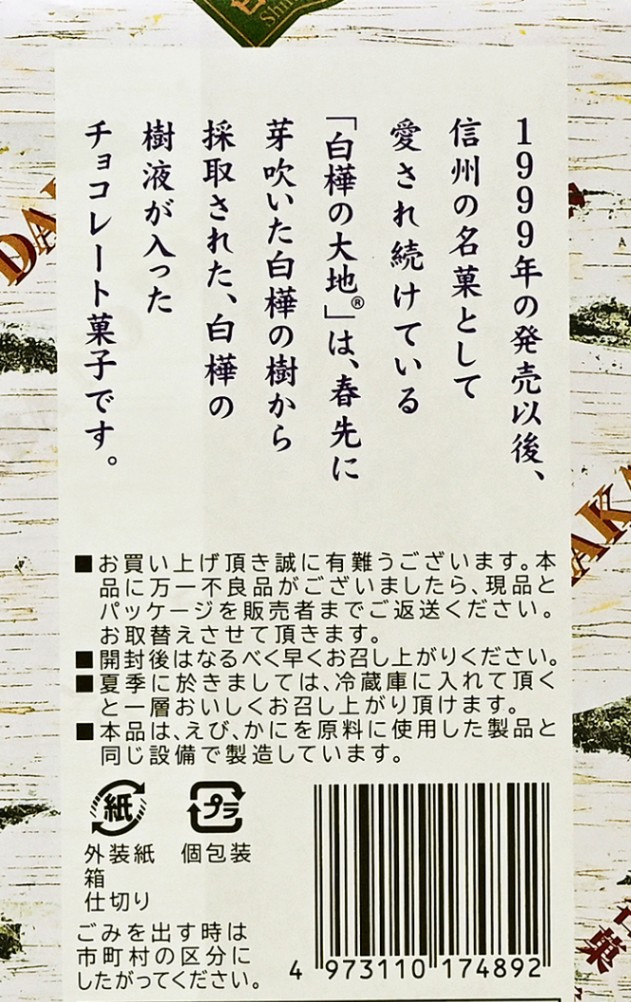 1999年の発売以後、
信州の名菓として
愛され続けている
「白樺の大地®」は、春先に
芽吹いた白樺の樹から
採取された、白樺の
樹液が入った
チョコレート菓子です。
■お買い上げ頂き誠に有難うございます。本
品に万一不良品がございましたら、現品と
パッケージを販売者までご返送ください。
お取替えさせて頂きます。
■開封後はなるべく早くお召し上がりください。
■夏季に於きましては、冷蔵庫に入れて頂く
と一層おいしくお召し上がり頂けます。
■本品は、えび、かにを原料に使用した製品と
同じ設備で製造しています。
紙
プラ
外装紙
箱
仕切り
個包装
ごみを出す時は
市町村の区分に
したがってください。
4 973110 174892
菓